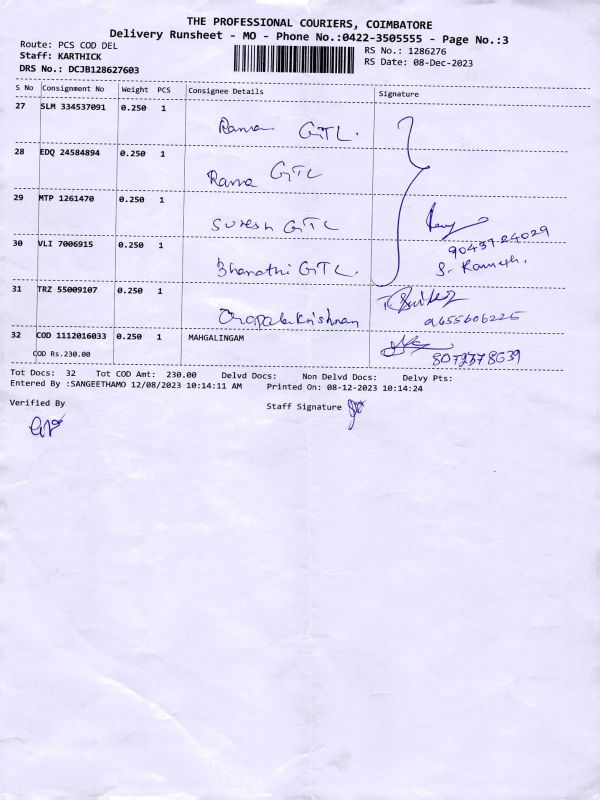 THE PROFESSIONAL COURIERS, COIMBATORE
Delivery Runsheet - MO - Phone No.:0422-3505555 - Page No.:3
Route: PCS COD DEL
RS No.: 1286276
Staff: KARTHICK
RS Date: 08-Dec-2023
DRS No.: DCJB128627603
S No Consignment No Weight PCS Consignee Details Signature
27 SLM 334537091 0.250 1
Rama GTL.
28 EDQ 24584894 0.250 1
Rama GTL
29 MTP 1261470 0.250 1
Suresh GTL
90439-24029
30 VLI 7006915 0.250 1
Bharathi GTL.
S. Ramesh.
31 TRZ 55009107 0.250 1
Gopalakrishnan
9655606225
32 COD 1112016033 0.250 1 MAHGALINGAM
COD Rs.230.00
Tot Docs: 32 Tot COD Amt: 230.00 Delvd Docs: Non Delvd Docs: Delvy Pts:
Entered By :SANGEETHAMO 12/08/2023 10:14:11 AM Printed On: 08-12-2023 10:14:24
Verified By
Staff Signature